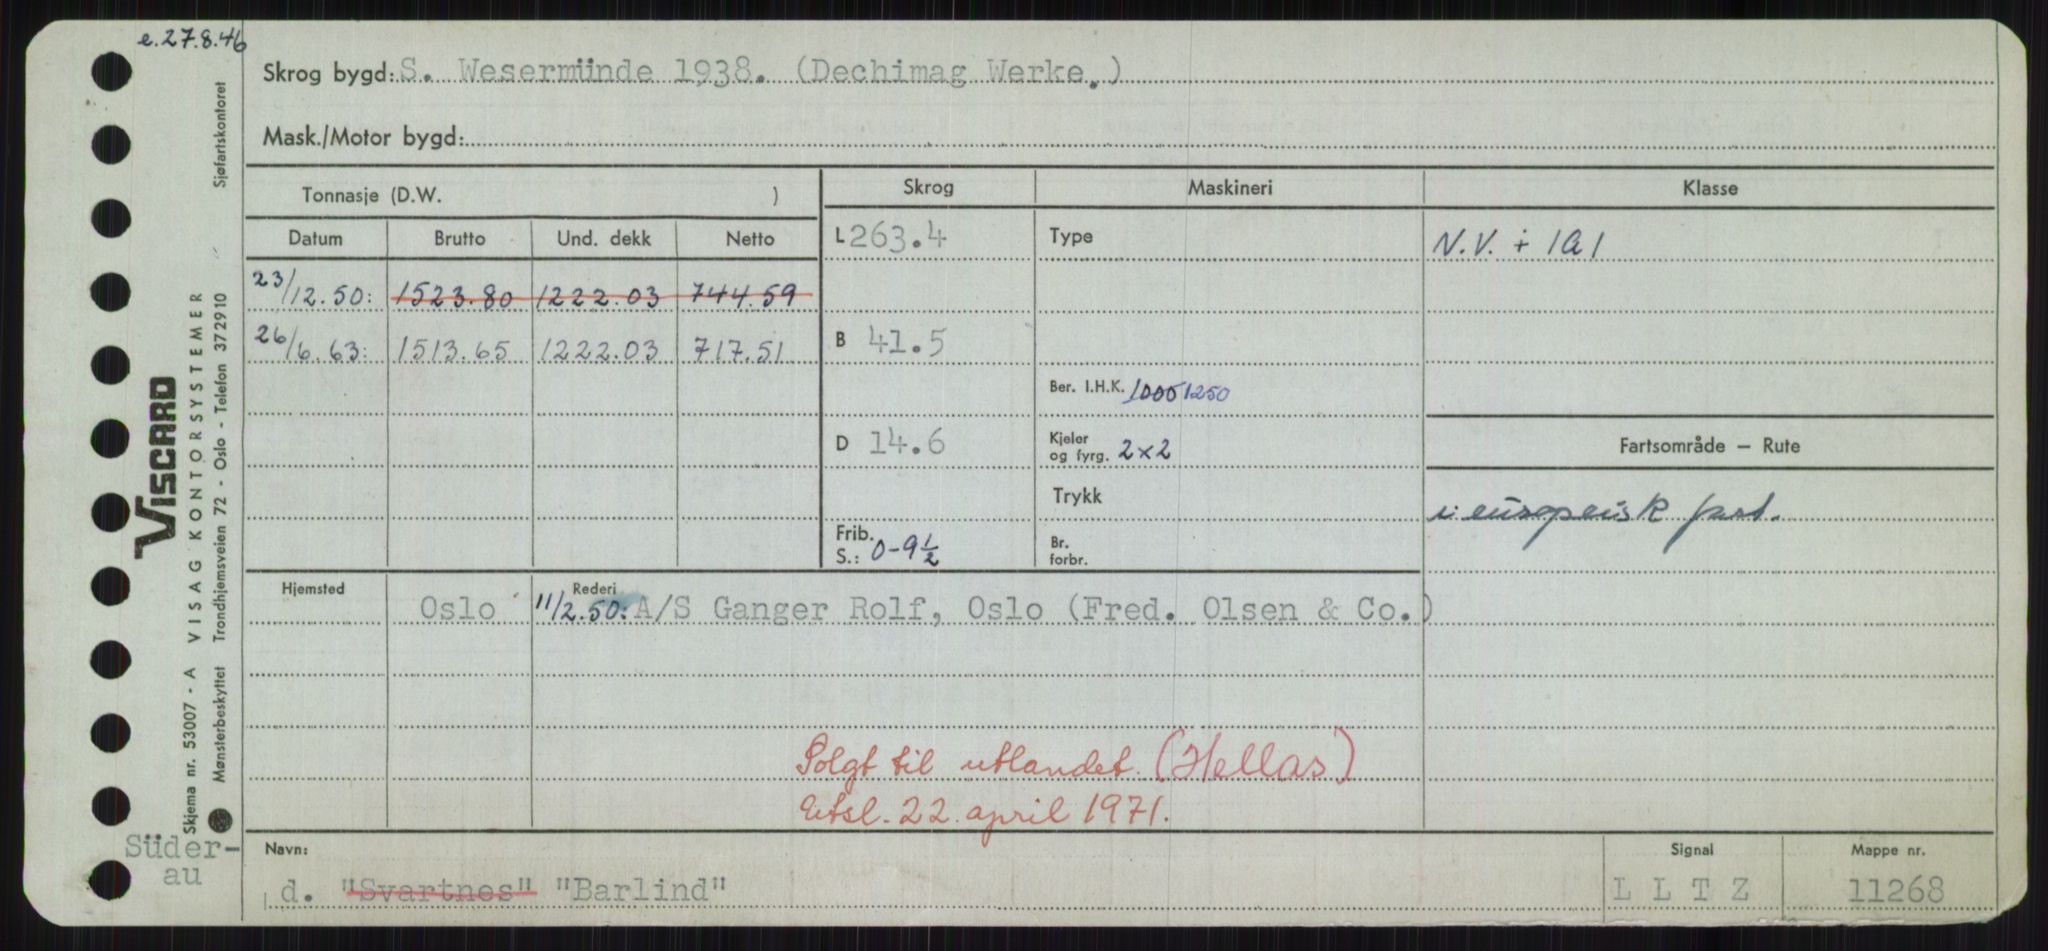 e.27.8.46
Skrog bygd: S. Wesermünde 1938. (Dechimag Werke.)
Mask./Motor bygd:
Tonnasje (D.W. )
Datum Brutto Und. dekk Netto
23/12.50: 1523.80 1222.03 744.59
26/6.63: 1513.65 1222.03 717.51
Skrog
L 263.4
B 41.5
D 14.6
Frib.
S.: 0-9½
Maskineri
Type
Ber. I.H.K. 1000 1250
Kjeler
og fyrg. 2x2
Trykk
Br.
forbr.
Klasse
N.V. + 1A1
Fartsområde — Rute
i europeisk fart.
Hjemsted Rederi
Oslo 11/2.50: A/S Ganger Rolf, Oslo (Fred. Olsen & Co.)
Solgt til utlandet. (Hellas)
Utsl. 22. april 1971.
Navn:
d. "Svartnes" "Barlind"
Signal
L L T Z
Mappe nr.
11268
Süder-
au
VISCARD
Skjema nr. 53007 - A VISAG KONTORSYSTEMER
Mønsterbeskyttet Trondhjemsveien 72 - Oslo - Telefon 372910 " Sjøfartskontoret